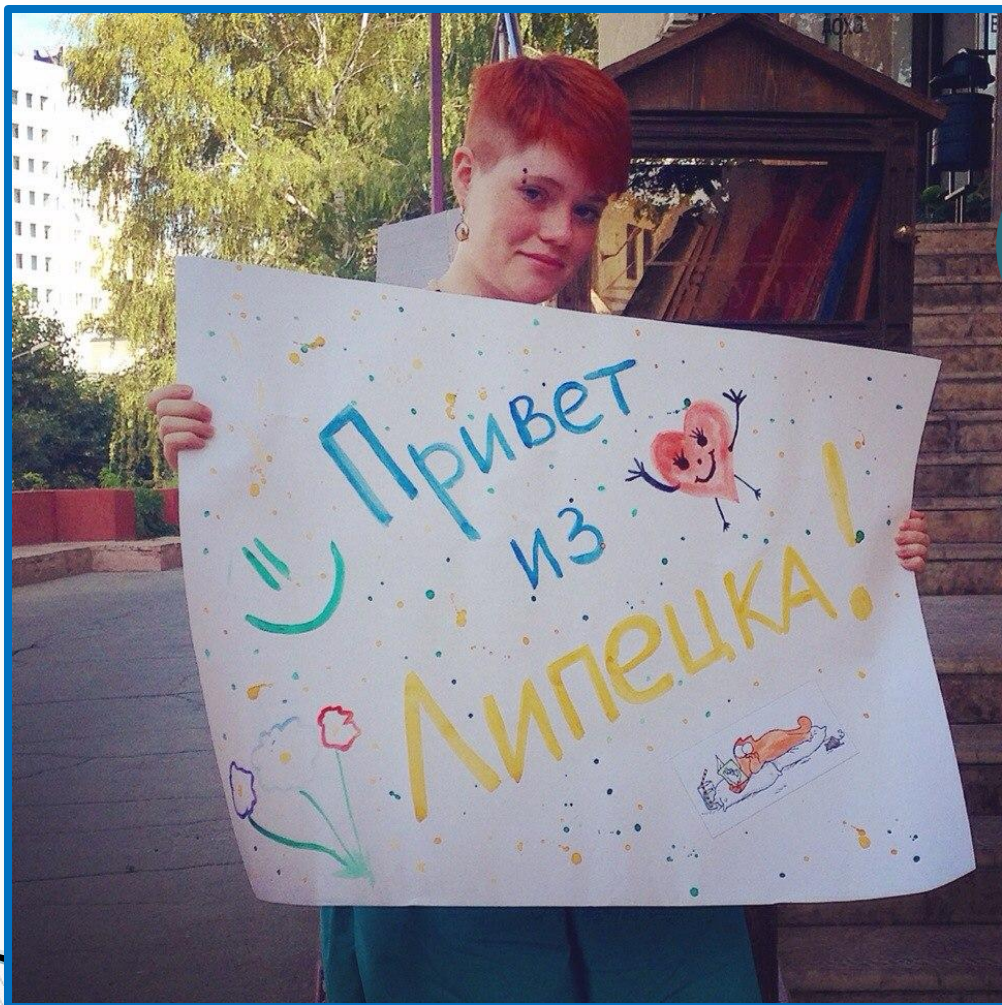 Привет
из
Липецка!